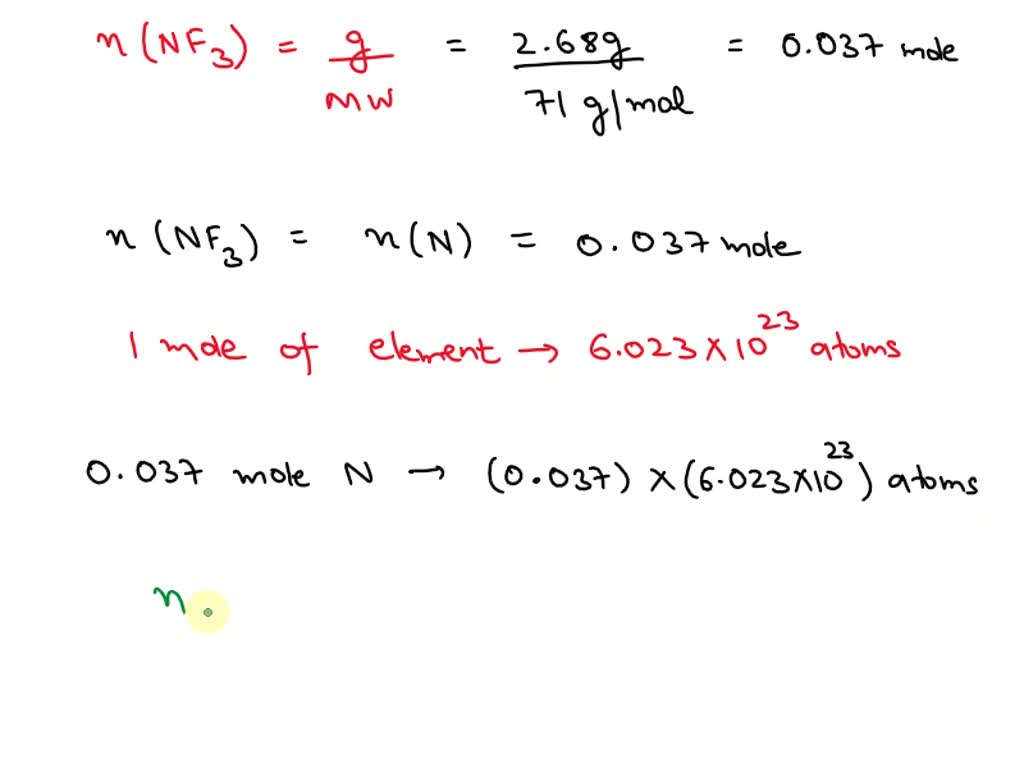 n (NF3) = g/MW = 2.68g/71 g/mol = 0.037 mole
n (NF3) = n(N) = 0.037 mole
1 mole of element → 6.023×10^23 atoms
0.037 mole N → (0.037) × (6.023×10^23) atoms
n